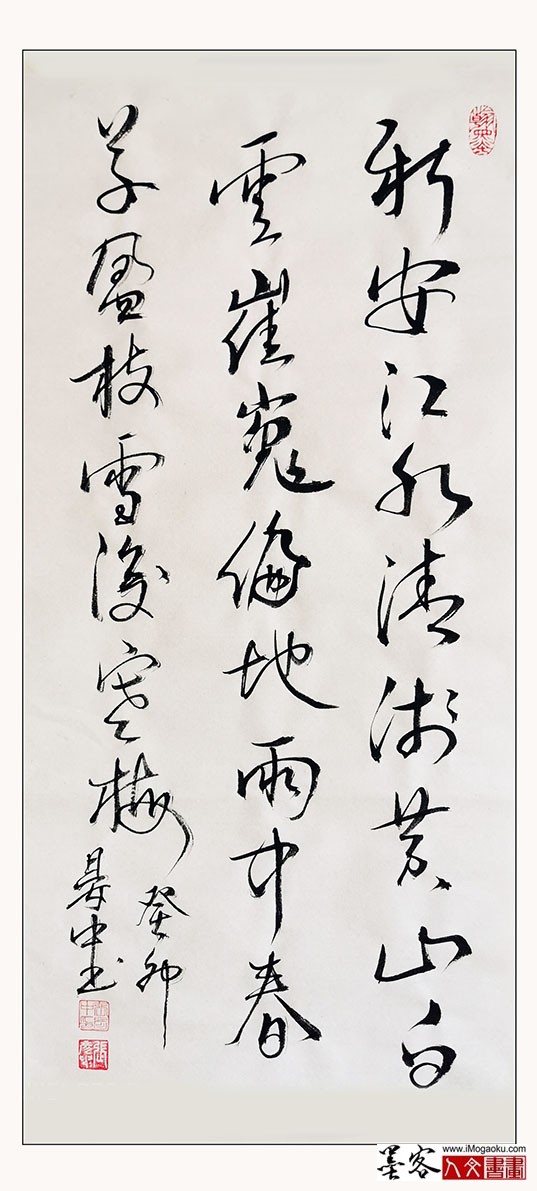 新安江水清淺黄山白
雲崔嵬徧地雨中春
草盈枝雪後寒梅
癸卯
中书
www.iMogaoku.com
墨客
人文書畫